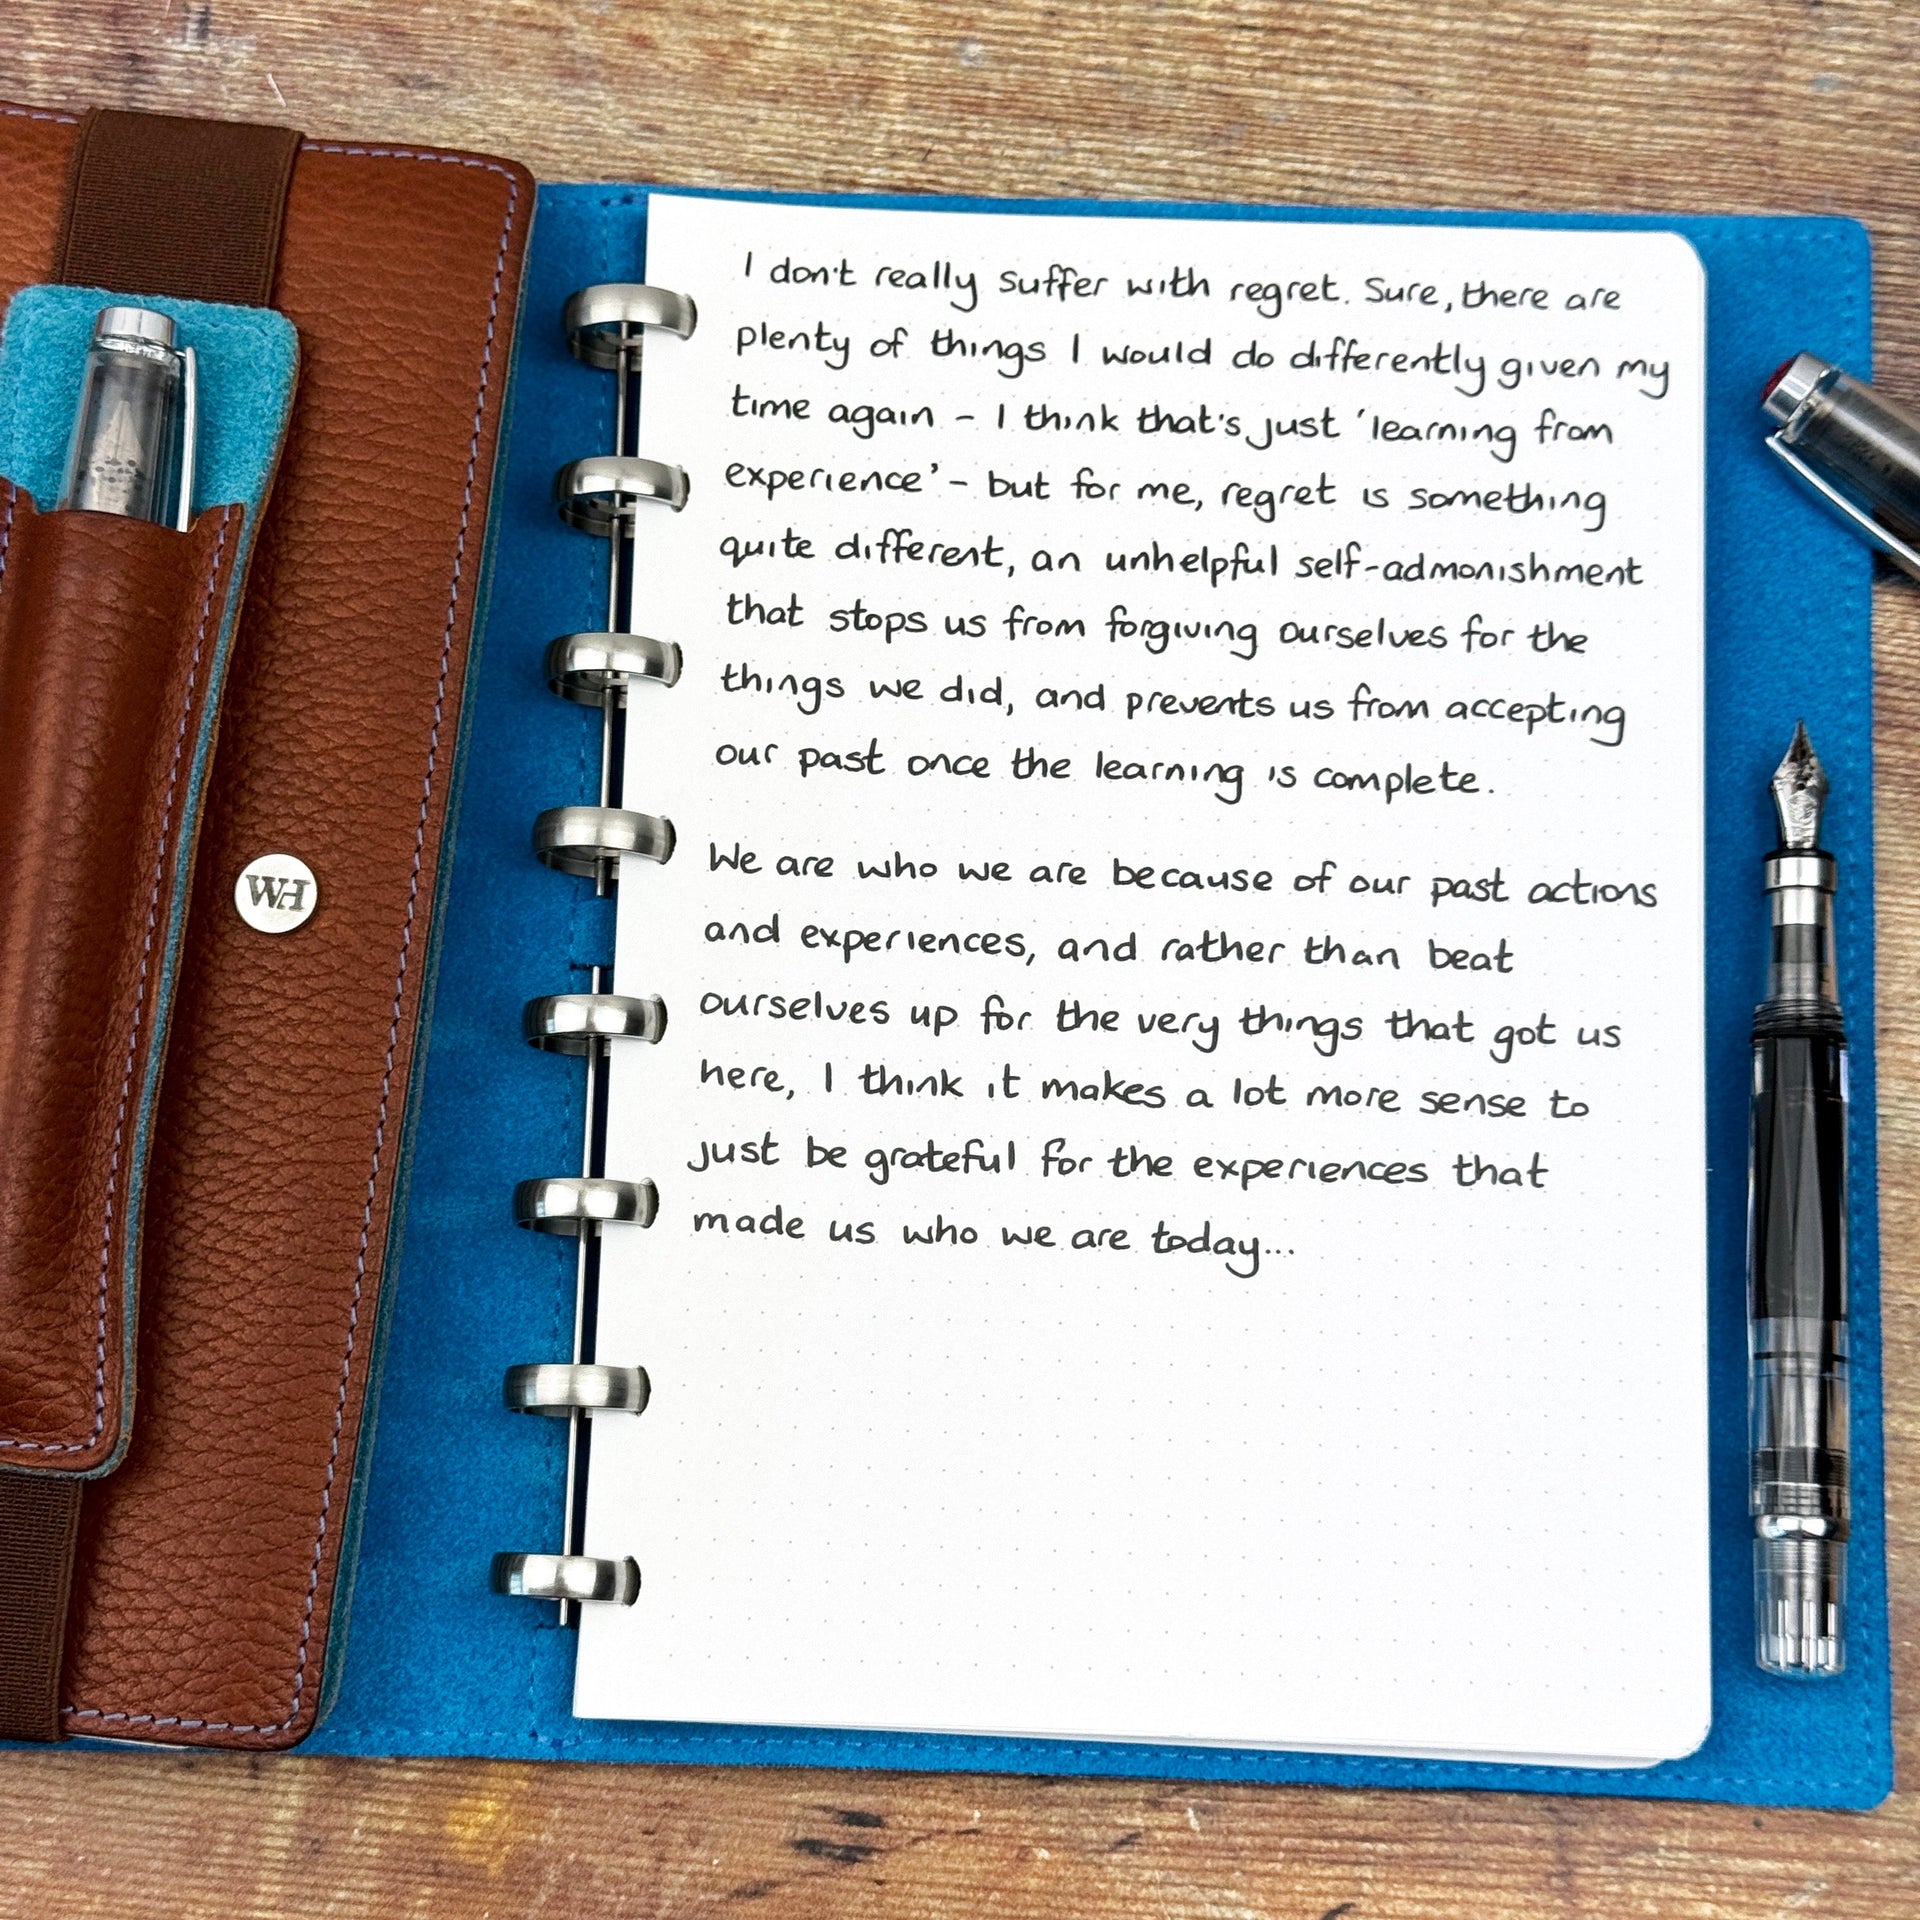 WH
I don't really suffer with regret. Sure, there are
plenty of things I would do differently given my
time again – I think that's just 'learning from
experience' – but for me, regret is something
quite different, an unhelpful self-admonishment
that stops us from forgiving ourselves for the
things we did, and prevents us from accepting
our past once the learning is complete.
We are who we are because of our past actions
and experiences, and rather than beat
ourselves up for the very things that got us
here, I think it makes a lot more sense to
just be grateful for the experiences that
made us who we are today...